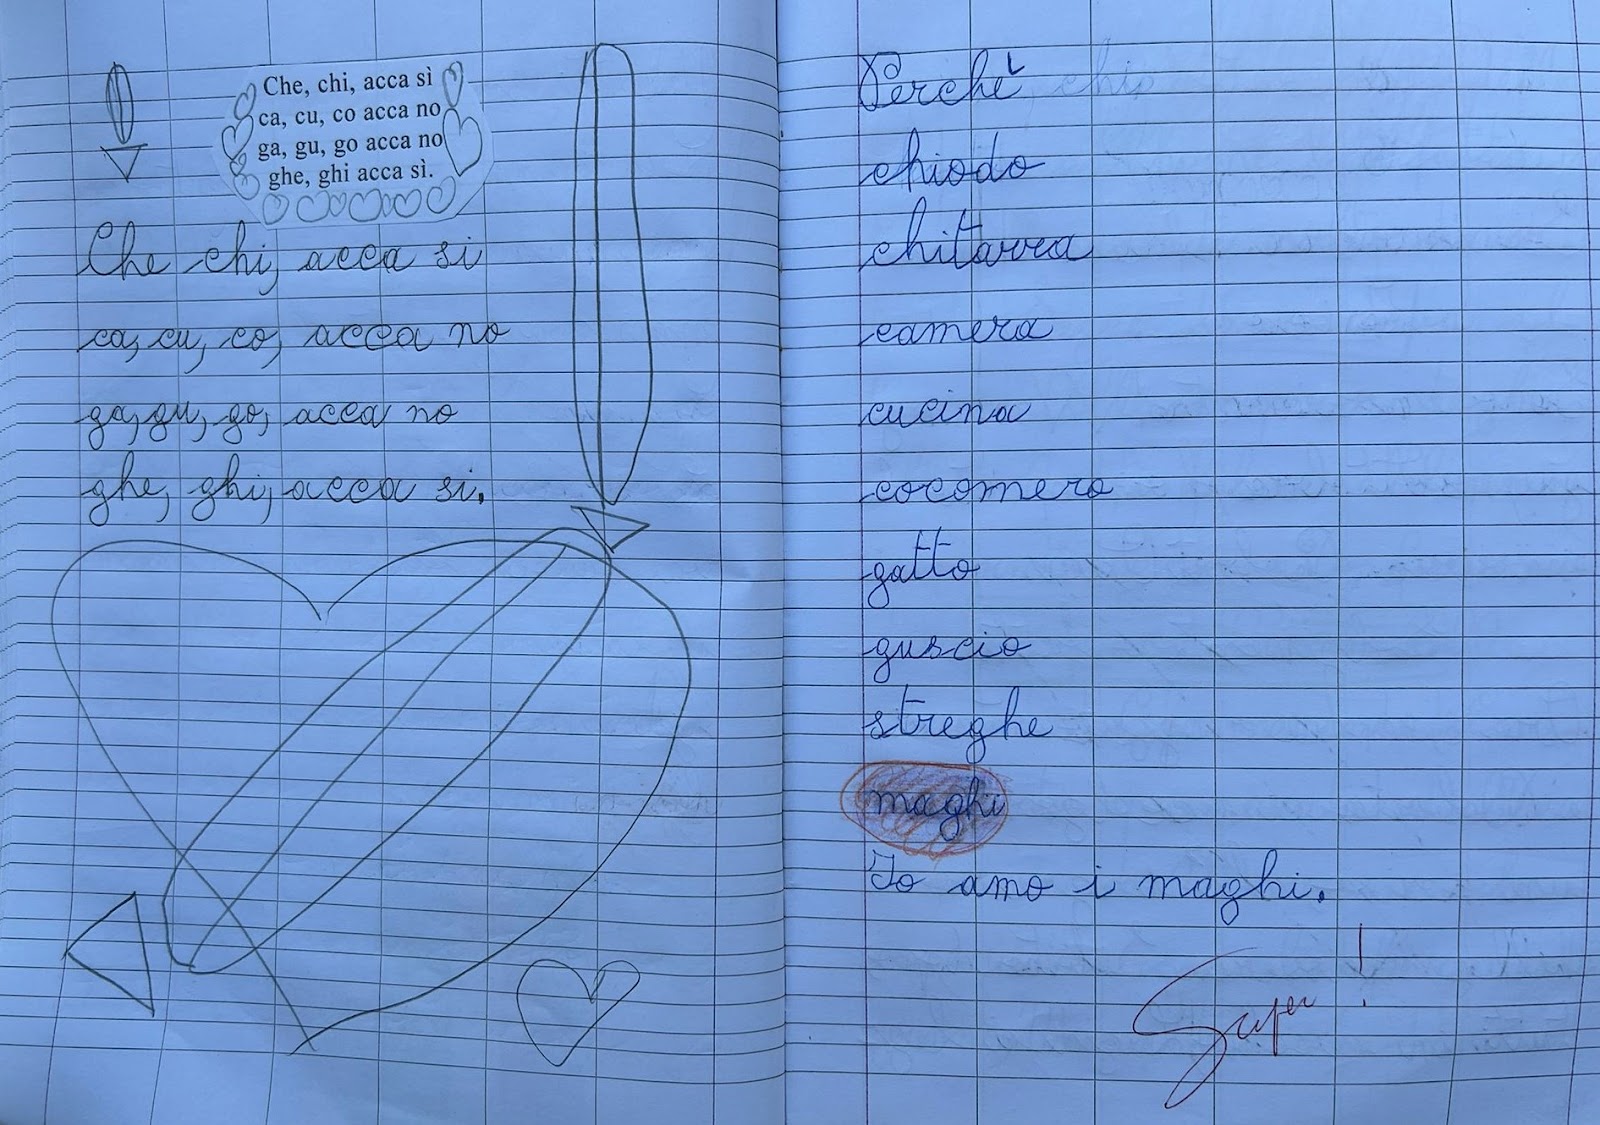 Che, chi, acca sì
ca, cu, co acca no
ga, gu, go acca no
ghe, ghi acca sì.
Che chi, acca si
ca, cu, co, acca no
ga, gu, go, acca no
ghe, ghi, acca si.
Perchè
chiodo
chitarra
camera
cucina
cocomero
gatto
guscio
streghe
maghi
Io amo i maghi.
Super!